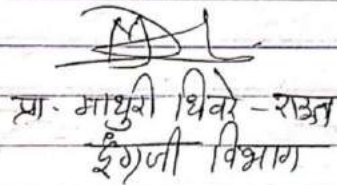 प्रा. माधुरी थिवरे - राऊत
इंग्रजी विभाग